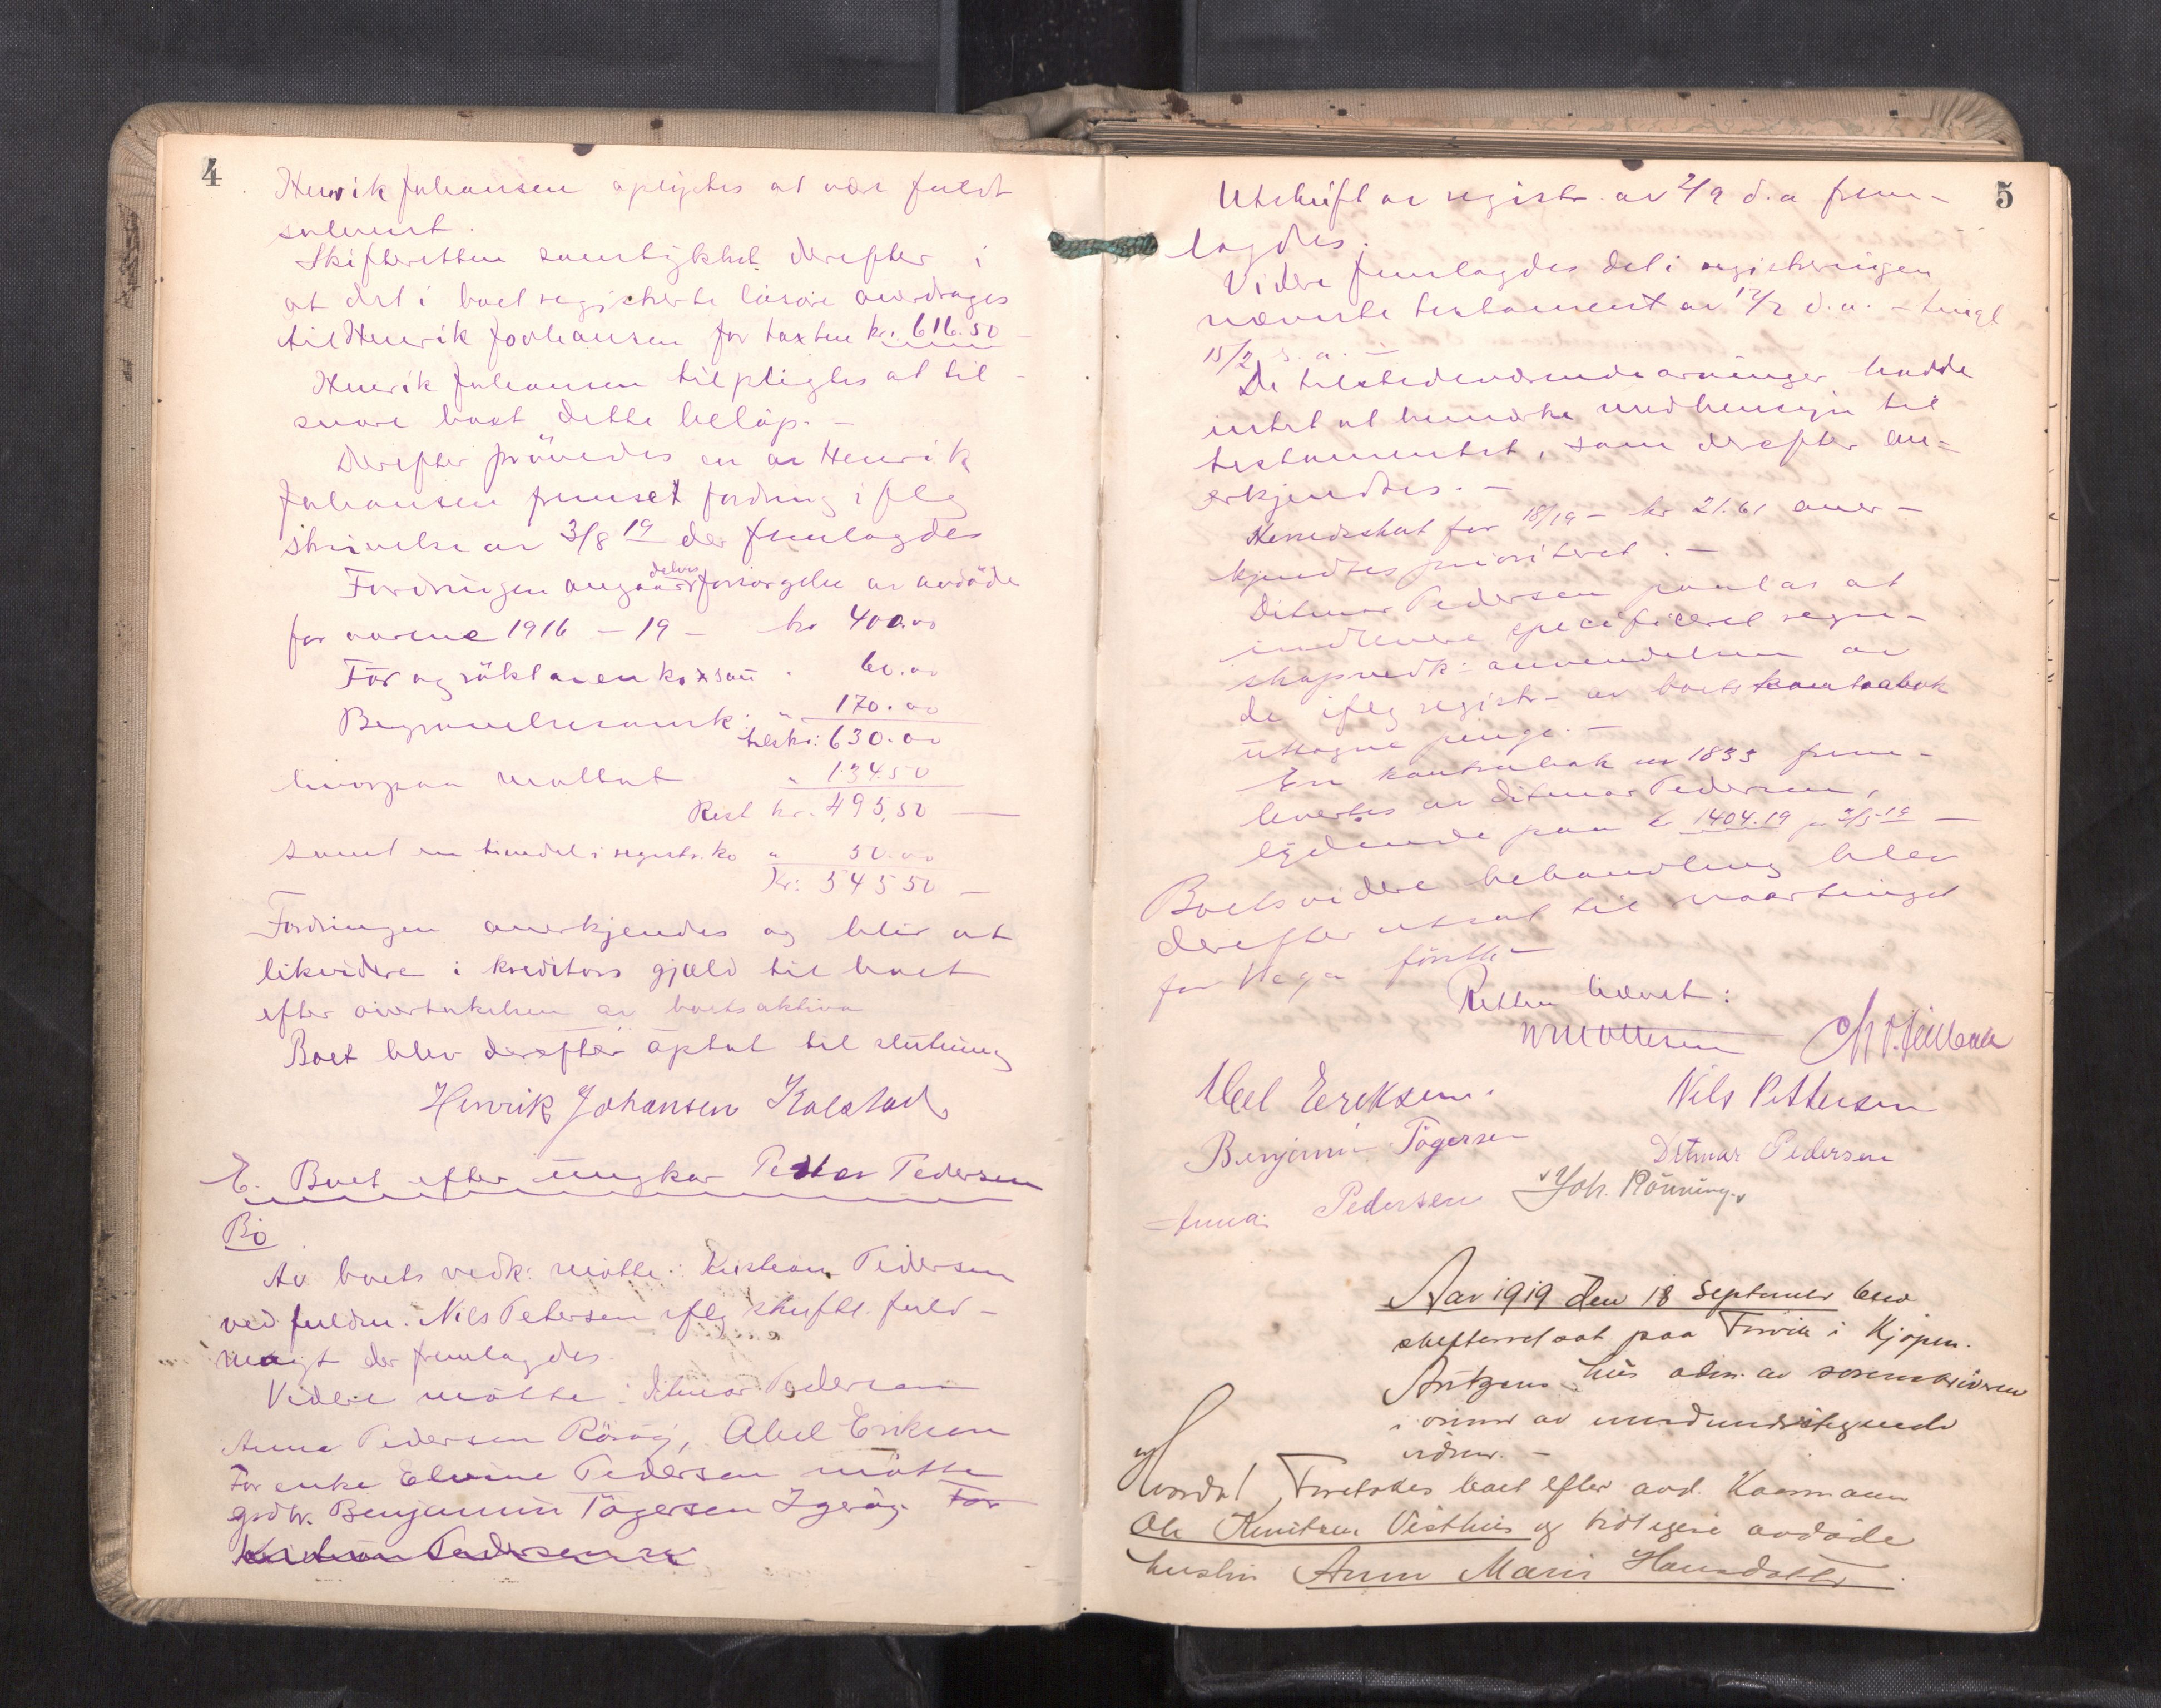 4
Henrik Johansen oplystes at være fuldt
solvent.
Skifteretten samtykket derefter i
at det i boet registrerte løsøre overdrages
til Henrik Johansen for taxten kr. 616.50
Henrik Johansen tilpligtes at til-
svare boet dette beløp. –
Derefter prøvedes en av Henrik
Johansen fremsat fordring iflg
skrivelse av 3/8 19 der fremlagdes
Fordringen angaar delvis forsørgelse av avdøde
for aarene 1916 – 19 – kr 400.00
For og røkt av en ko x sau " 60.00
Begravelsesomk. " 170.00
tils kr: 630.00
hvorpaa mottat " 134.50
Rest kr. 495,50 —
samt en tiendel i registr. ko " 50.00
Kr: 545 50 –
Fordringen anerkjendes og blir at
likvidere i kreditors gjæld til boet
efter overtakelsen av boets aktiva
Boet blev derefter optat til slutning
Henrik Johansen Kolstad
E. Boet efter ungkar Petter Pedersen
Bø
Av boets vedk: møtte: Kristian Pedersen
ved fuldm. Nils Petersen iflg skriftl. fuld-
magt der fremlagdes.
Videre møtte: Ditmar Pedersen
Anna Pedersen Rørøy, Abel Eriksen
For enke Elvine Pedersen møtte
grdbr. Benjamin Tøgersen Igerøy. For
Kristian Pedersen
5
Utskrift av registr. av 2/9 d.a frem-
lagdes.
Videre fremlagdes det i registreringen
nævnte testament av 12/2 d.a. – tingl
15/2 s.a. –
De tilstedeværende arvinger hadde
intet at bemærke med hensyn til
testamentet, som derefter an-
erkjendtes. –
Herredsskat for 18/19 – kr 21.61 aner-
kjendtes prioriteret. –
Ditmar Pedersen paalas at
indlevere specificeret regn-
skap vedk: anvendelsen av
de iflg registr – av boets kontrabok
uttagne penge. –
En kontrabok nr 1833 frem-
levertes av Ditmar Pedersen,
lydende paa kr 1404.19 pr 2/5 19 —
Boets videre behandling blev
derefter utsat til vaartinget
for Vega førstk.
Retten hævet:
Abel Eriksen.
Nils Pettersen
Benjamin Tøgersen
Ditmar Pedersen
Anna Pedersen
Joh. Rønning.
Aar 1919 den 18 September blev
skifteret sat paa Forvik i Kjøpm.
Arntzens hus adm. av sorenskriveren
i overvær av medundertegnede
vidner. –
Hvorda! Foretokes boet efter avd. Kaarmann
Ole Knutsen Visthus og tidligere avdøde
hustru Anne Marie Hansdatter